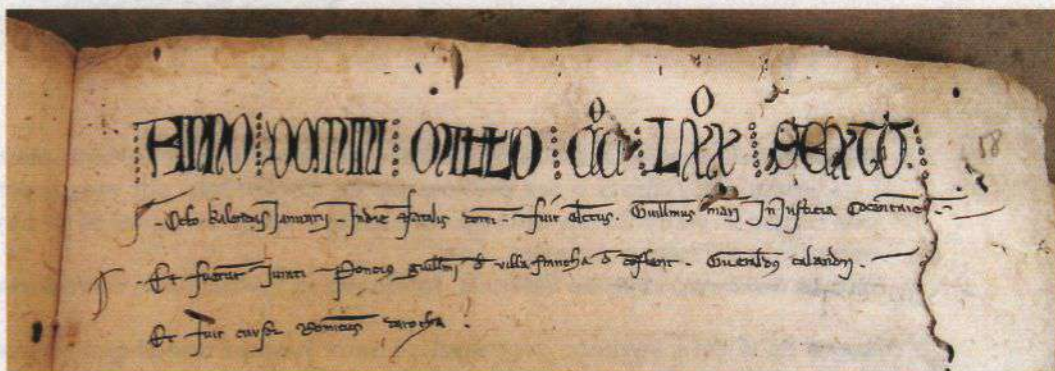 ANNO DOMINI MILLO CC LXX SEXTO. 18
Octo kalendas Januarii Indie Natalis domi fuit electus. Guillmus mari In Justicia Cocentanie
Et fuerunt Jurati Poncius guillmi d villa francha d conflent. Gueraldus calandri.
Et fuit cursor dominicus darocha.